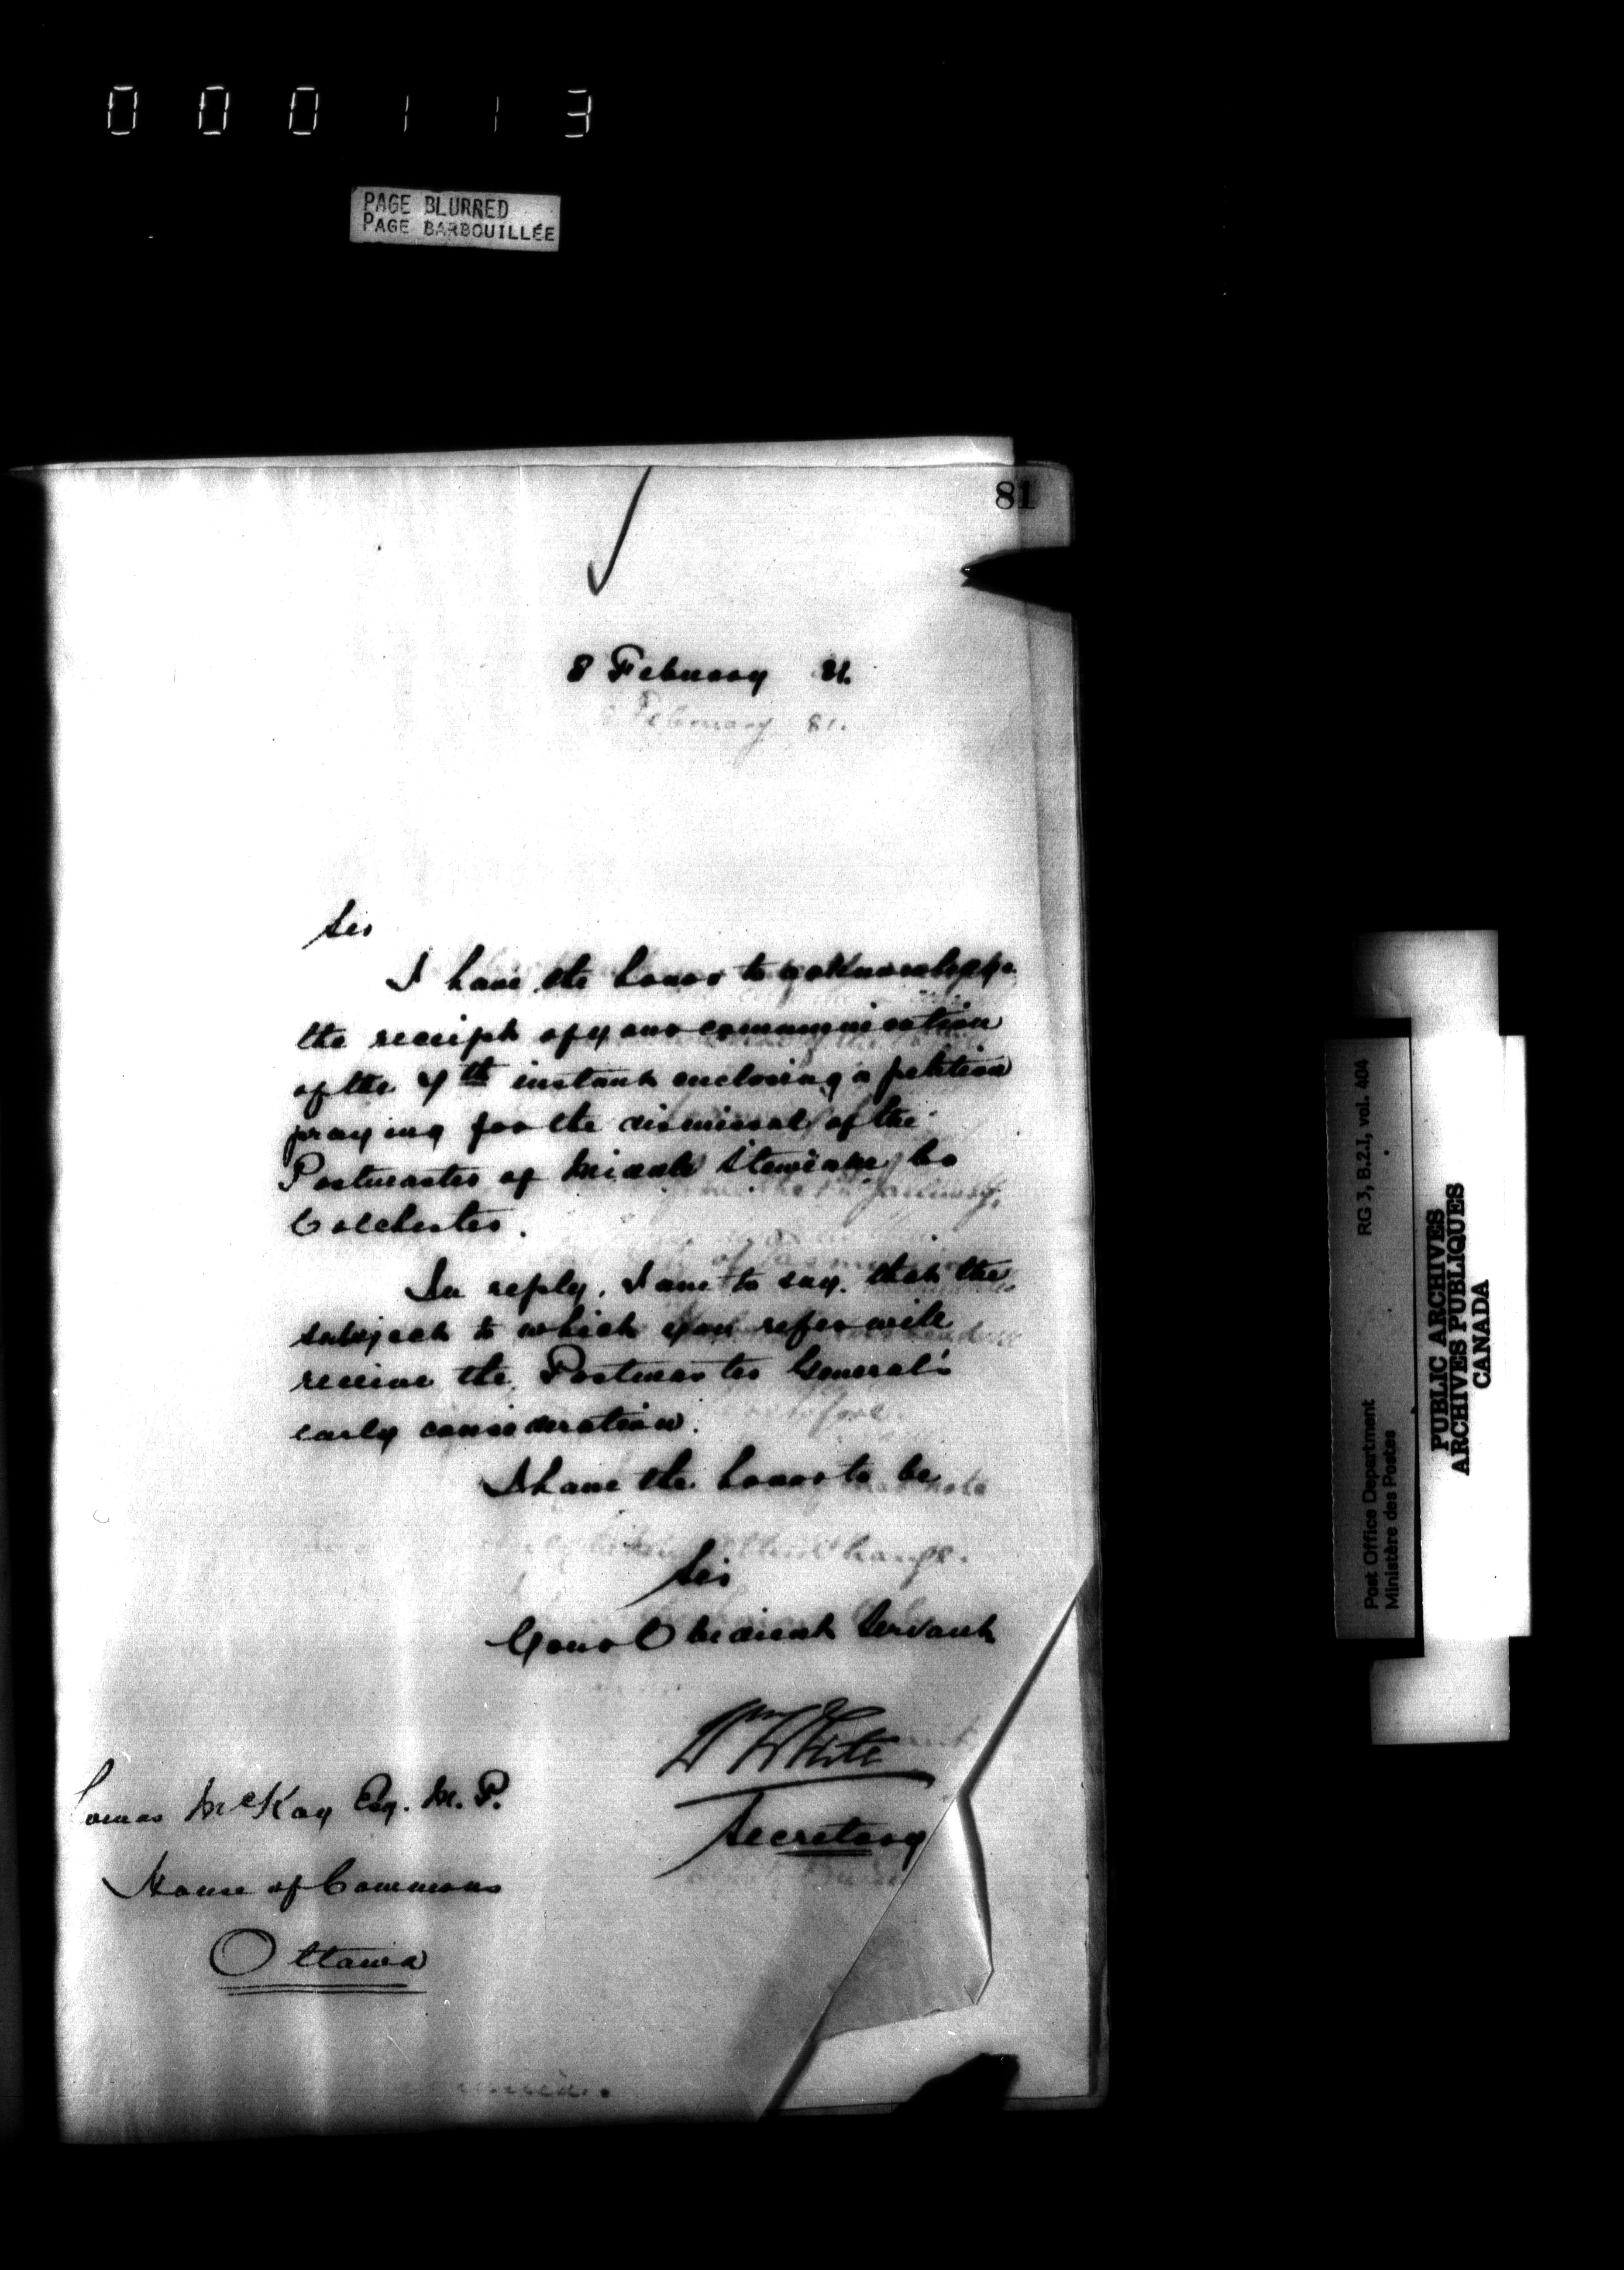 000113
PAGE BLURRED
PAGE BARBOUILLÉE
81
8 February 81.
February 81.
Sir
I have the honor to acknowledge
the receipt of your communication
of the 4th instant enclosing a petition
praying for the dismissal of the
Postmaster of Middle Stewiacke, Co
Colchester.
In reply, I am to say, that the
subject to which you refer will
receive the Postmaster General's
early consideration.
I have the honor to be
Sir
Your Obedient Servant
Wm White
Secretary
McKay Esq. M. P.
House of Commons
Ottawa
Post Office Department RG 3, B.2.I, vol. 404
Ministère des Postes
PUBLIC ARCHIVES
ARCHIVES PUBLIQUES
CANADA